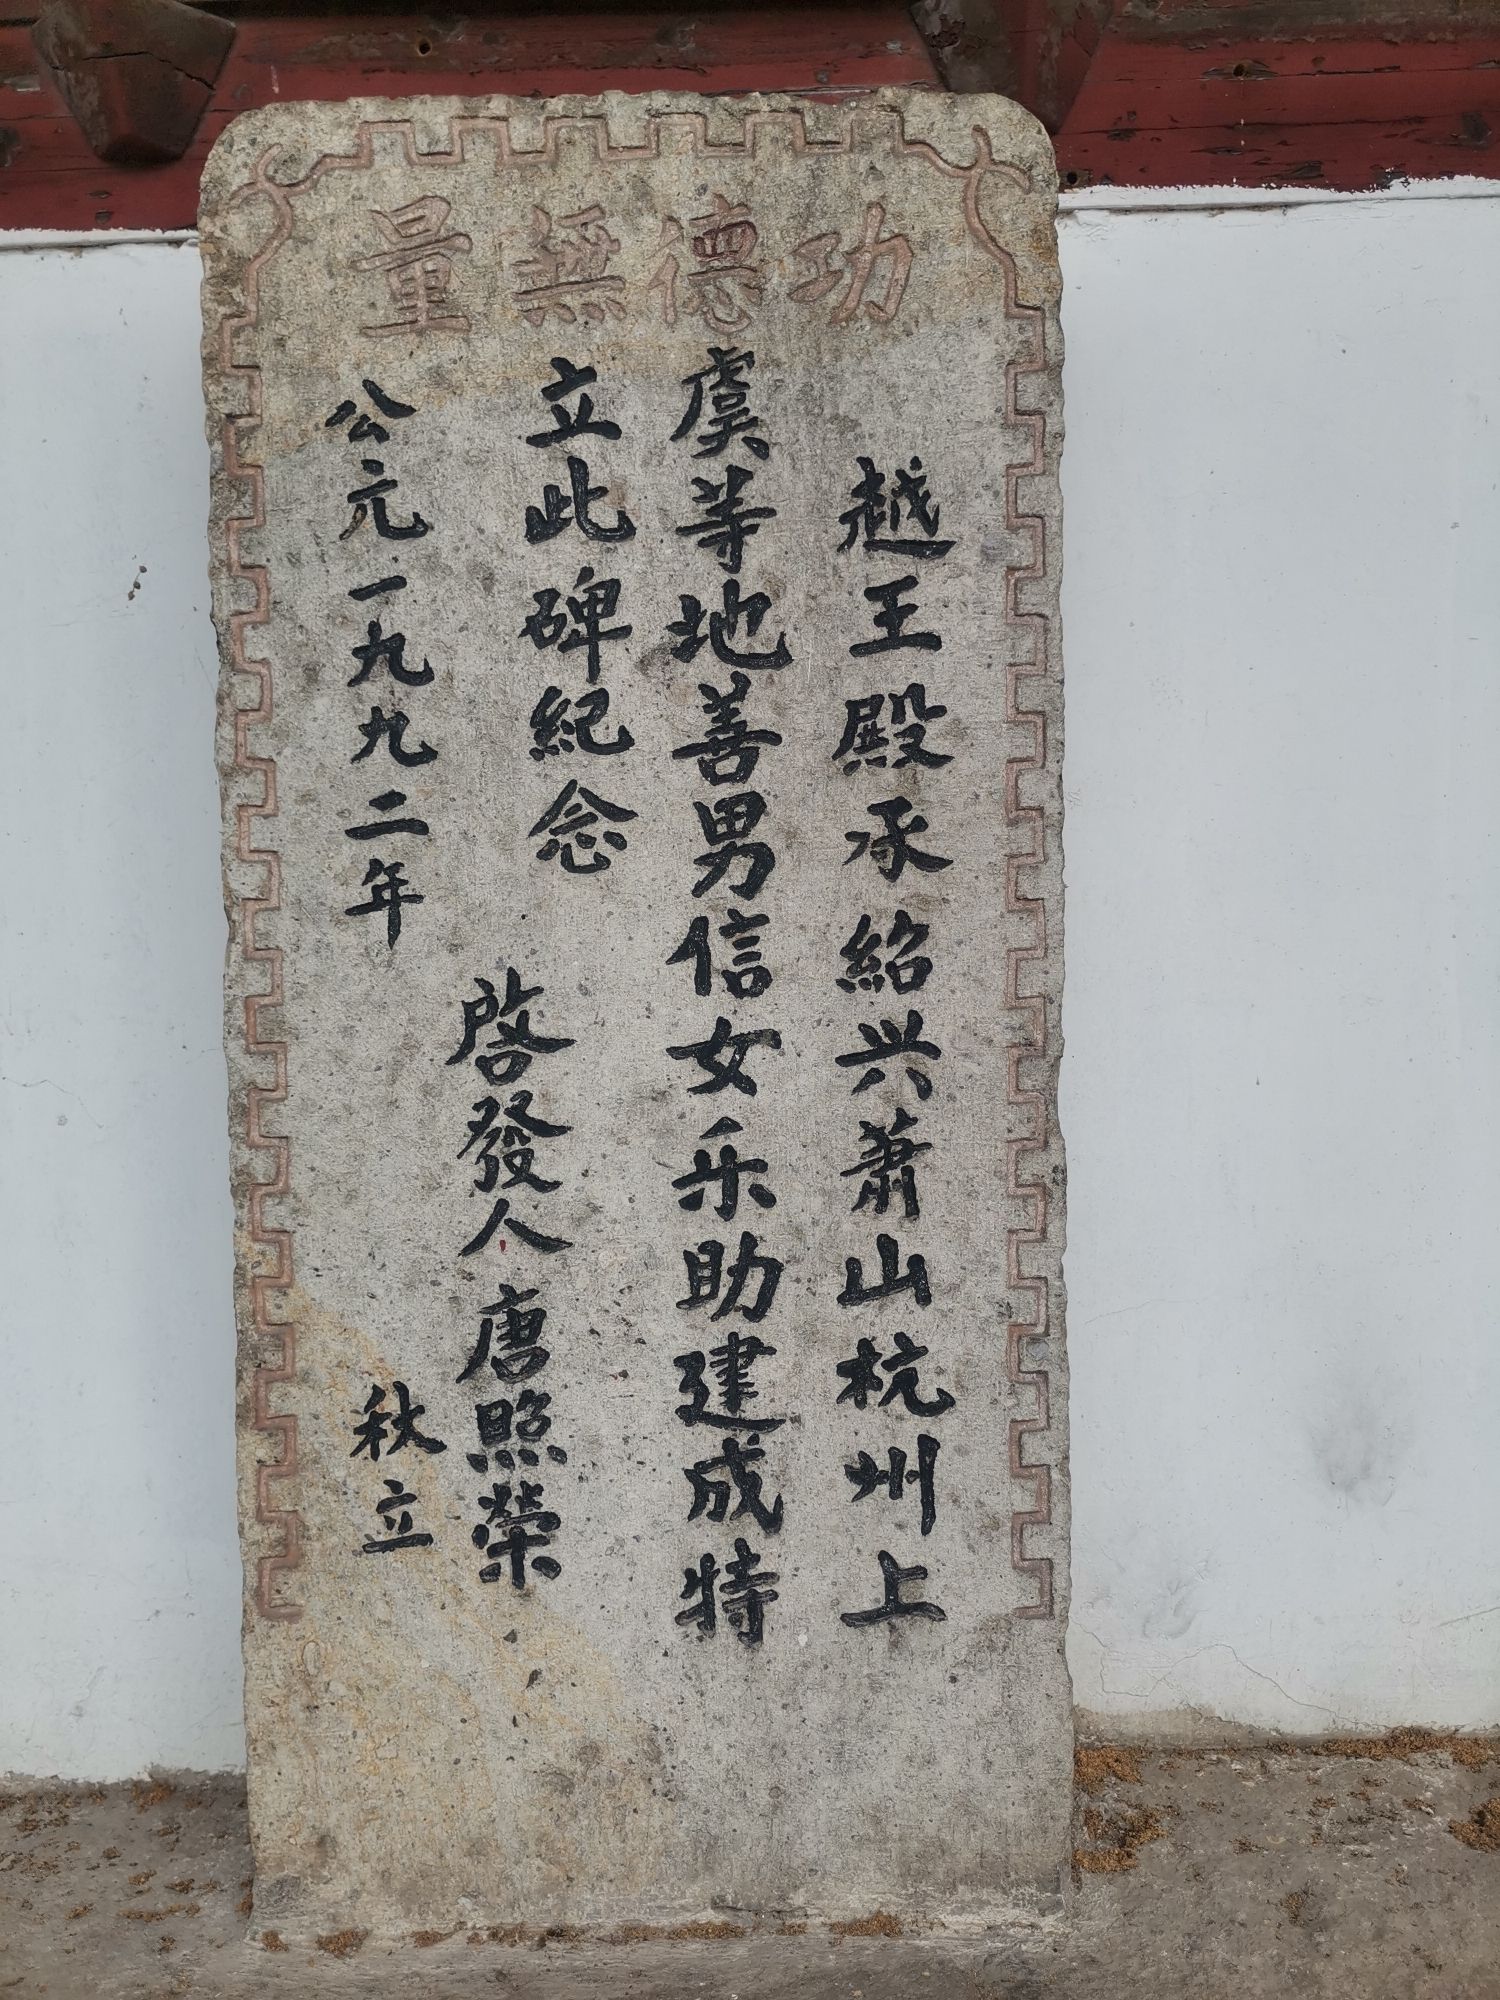 功德無量
越王殿承紹兴蕭山杭州上
虞等地善男信女乐助建成特
立此碑紀念
啓發人唐照榮
公元一九九二年 秋立